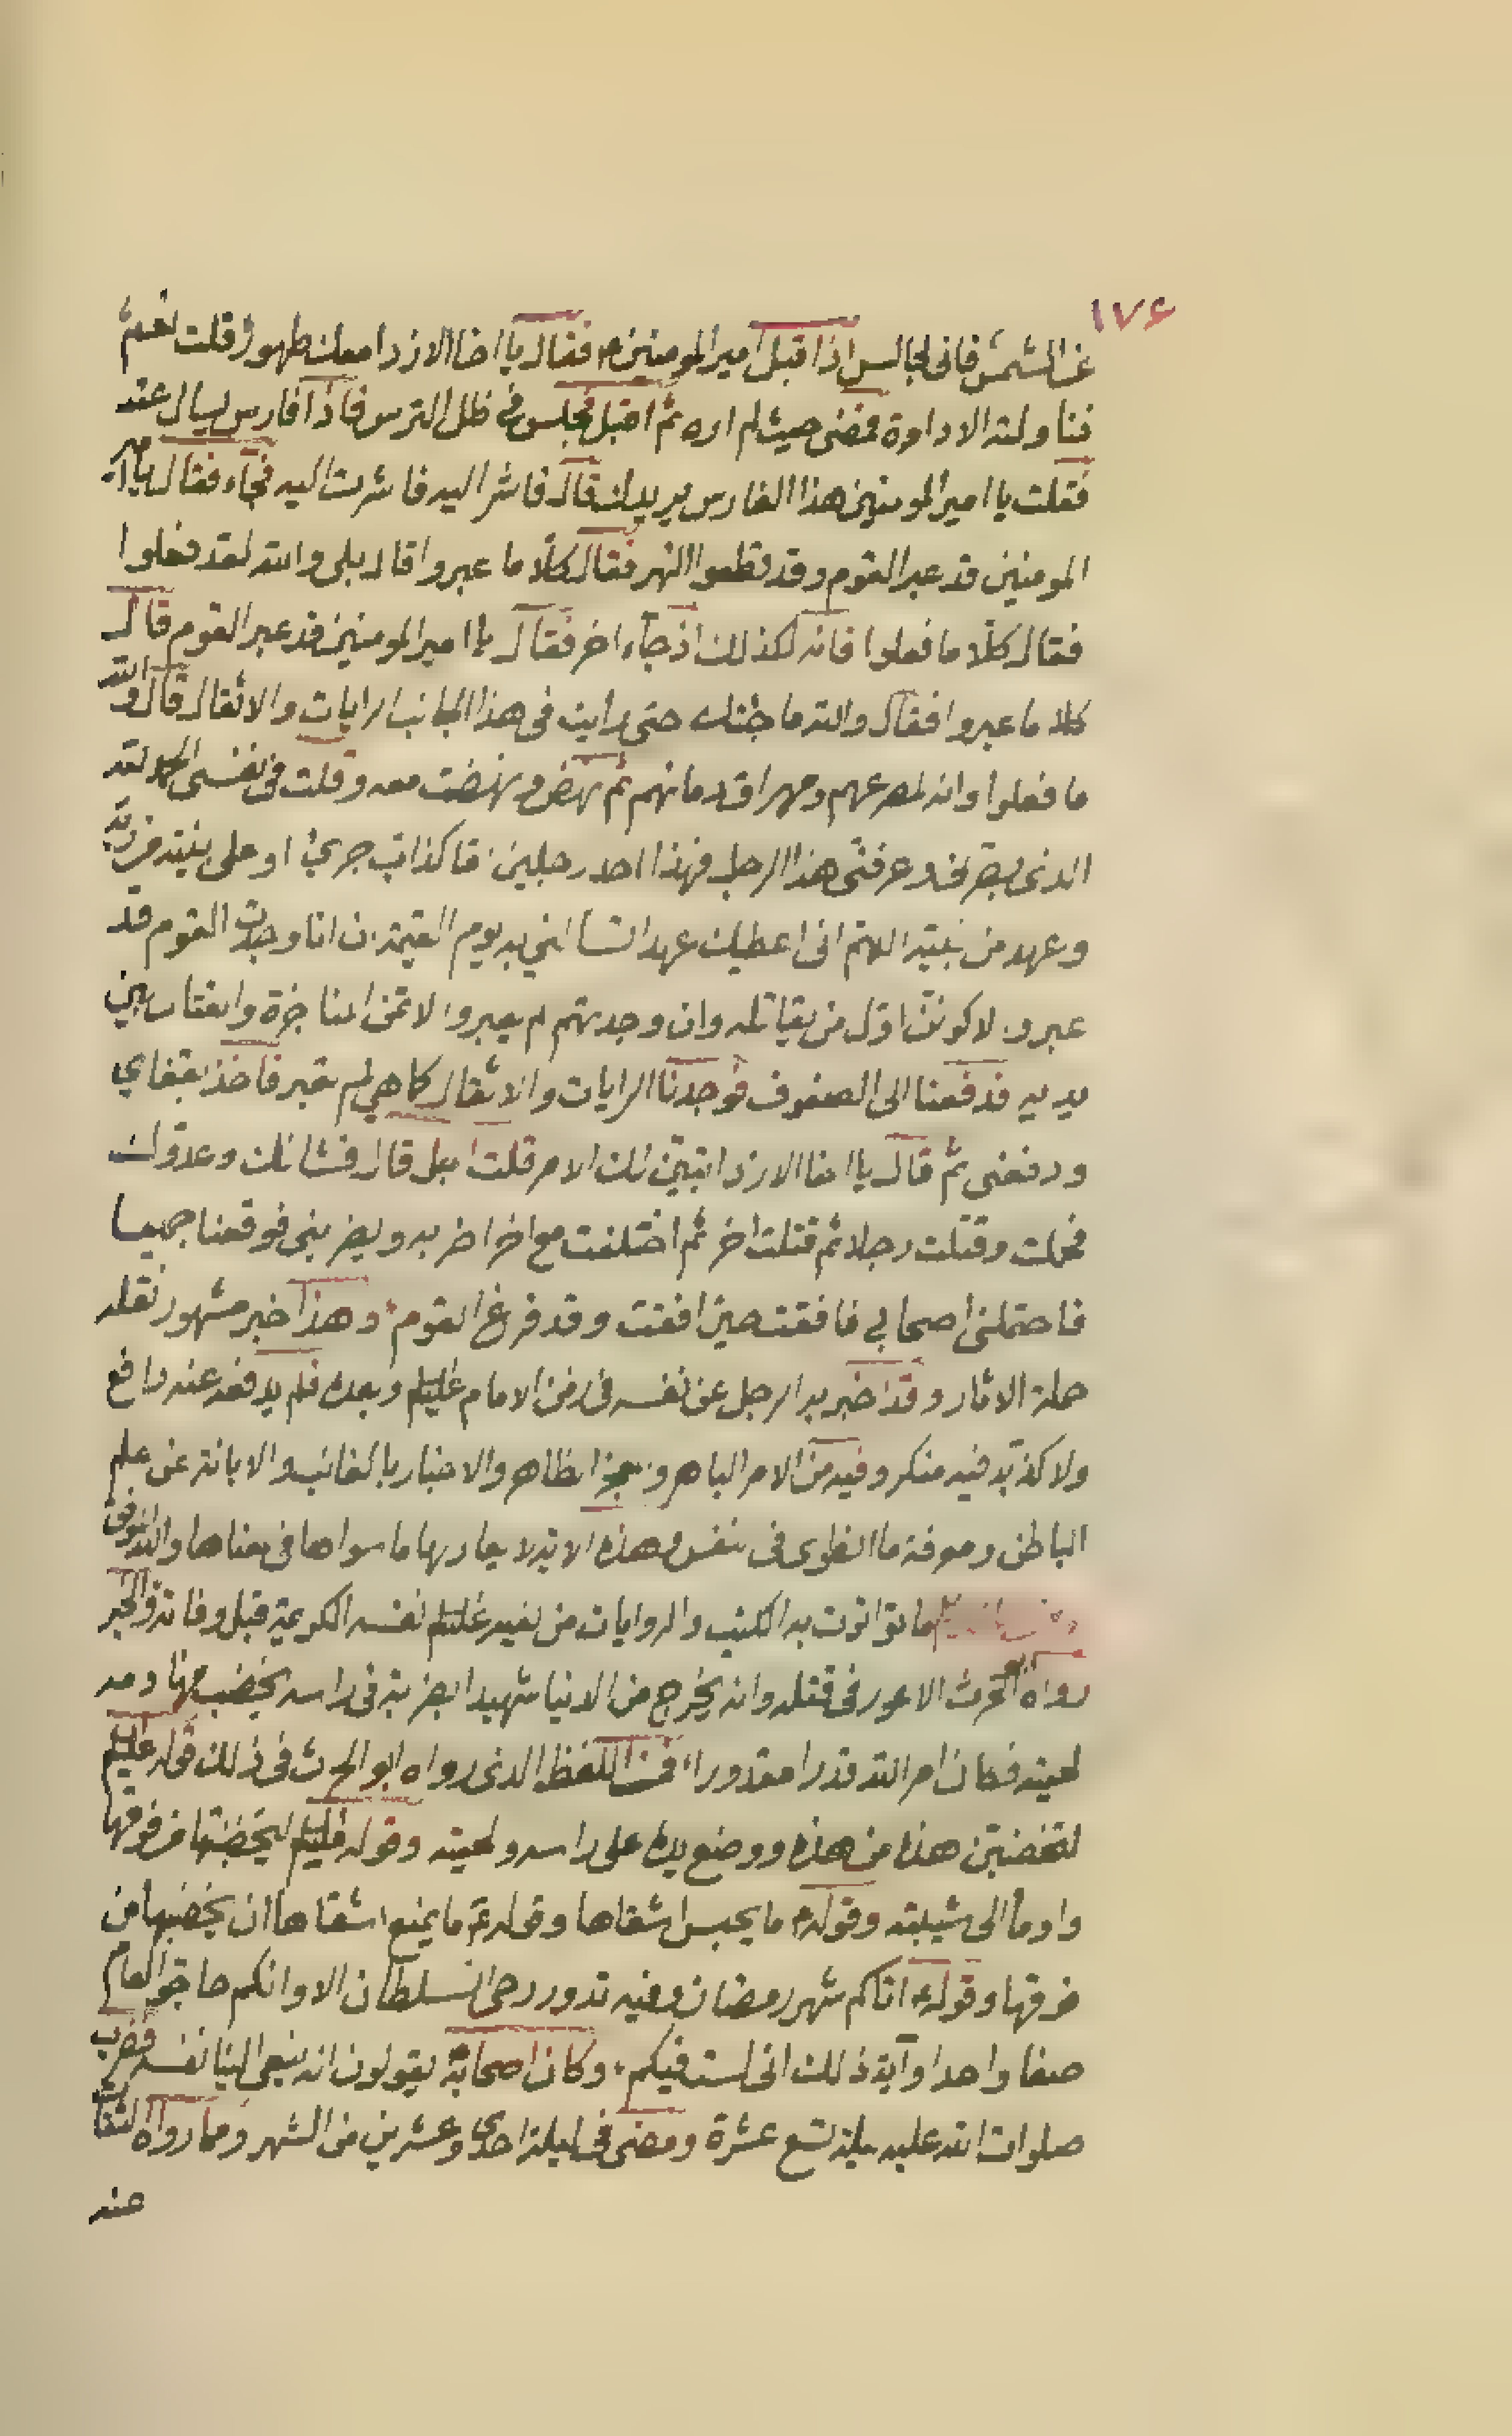 ١٧٤
عن الشمس فانى لجالس اذا قبل امير المومنين ع فقال يا اخا الازد امعك طهور قلت نعم ثم
فناولته الاداوة فمضى حيث لم اره ثم اقبل فجلس فى ظل الترس فاذا فارس يسال عنه
فقلت يا امير المومنين هذا الفارس يريدك قال فاشر اليه فاشرت اليه فجاء فقال يا امير
المومنين قد عبر القوم وقد قطعوا النهر فقال كلا ما عبروا قال بلى والله لقد فعلوا
فقال كلا ما فعلوا فانه لكذلك اذ جآء اخر فقال يا امير المومنين قد عبر القوم قال
كلا ما عبروا فقال والله ما جئتك حتى رايت فى هذا الجانب الرايات والاثقال قال والله
ما فعلوا وانه لمصرعهم ومهراق دمائهم ثم نهض ونهضت معه وقلت فى نفسى الحمد لله
الذى بصرنى وعرفنى هذا الرجل فهذا احد رجلين اما كذاب جرئ او على بينة من ربه
وعهد من نبيه اللهم انى اعطيك عهدا تسالنى به يوم القيمة ان انا وجدت القوم قد
عبروا لاكونن اول من يقاتله وان وجدتهم لم يعبروا لاتمن المناجزة والقتال بين
يديه فدفعنا الى الصفوف فوجدنا الرايات والاثقال كما هي لم تعبر فاخذ بقفاي
ودفعنى ثم قال يا اخا الازد اتبين لك الامر قلت اجل قال فشانك وعدوك
فحملت وقتلت رجلا ثم قتلت اخر ثم اختلفت مع اخر اضربه ويضربنى فوقعنا جميعا
فاحتملنى اصحابي فافقت حين افقت وقد فرغ القوم وهذا خبر مشهور نقله
حملة الاثار وقد اخبر به الرجل عن نفسه فى زمن الامام عليلم وبعده فلم يدفعه عنه دافع
ولا كذبه فيه منكر وفيه من الامر الباهر والمعجز الظاهر والاخبار بالغائب والابانة عن علم
الباطن ومعرفة ما انطوى فى نفس وهذه الاية لا يعادلها ما سواها فى معناها والله الموفق
ما تواترت به الكتب والروايات من نعيه عليلم نفسه الكريمة قبل وفاته والخبر
رواه ابو الحرث الاعور فى قتله وانه يخرج من الدنيا شهيدا بضربة فى راسه يخضب منها دمه
لحيته فكان امر الله قدرا مقدورا فمن اللفظ الذى رواه ابو الحرث فى ذلك قوله عليلم
لتخضبن هذه من هذه ووضع يده على راسه ولحيته وقوله عليلم ليخضبنها من فوقها
واومأ الى شيبته وقوله ع ما يحبس اشقاها وقوله ع ما يمنع اشقاها ان يخضبها من
فوقها وقوله ع اتاكم شهر رمضان وفيه تدور رحى السلطان الا وانكم حاجوا العام
صفا واحدا وآية ذلك انى لست فيكم وكان اصحابه يقولون انه ينعى الينا نفسه فضرب
صلوات الله عليه ليلة تسع عشرة ومضى فى ليلة احدى وعشرين من الشهر ومما رواه الثقات
عنه